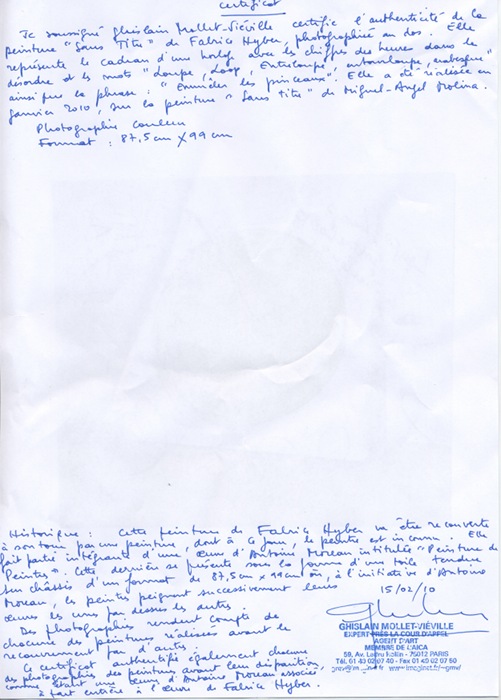 certificat
Je soussigné Ghislain Mollet-Viéville certifie l'authenticité de la
peinture "Sans Titre" de Fabrice Hyber, photographiée au dos. Elle
représente le cadran d'une horloge avec les chiffres des heures dans le
désordre et les mots "Loupe, Loop, Entreloupe, entourloupe, arabesque"
ainsi que la phrase : " les pinceaux". Elle a été réalisée en
janvier 2010, sur la peinture "Sans titre" de Miguel-Angel Molina.
Photographie Couleur
Format : 87,5 cm x 99 cm
Historique : Cette peinture de Fabrice Hyber va être recouverte
à son tour par une peinture, dont à ce jour, le peintre est inconnu. Elle
fait partie intégrante d'une œuvre d'Antoine Moreau intitulée "Peinture de
Peintres". Cette dernière se présente sous la forme d'une toile tendue
sur châssis d'un format de 87,5 cm x 99 cm où, à l'initiative d'Antoine
Moreau, les peintres peignent successivement leurs
œuvres les unes par dessus les autres.
15/02/10
Des photographies rendent compte de
chacune des peintures, réalisées avant le
recouvrement par d'autres.
Ce certificat authentifie également chacune
des photographies des peintures avant leur disparition,
comme étant une œuvre d'Antoine Moreau associée
à part entière à l'œuvre de Fabrice Hyber.
GHISLAIN MOLLET-VIÉVILLE
EXPERT PRÈS LA COUR D'APPEL
AGENT D'ART
MEMBRE DE L'AICA
59, Av Ledru Rollin - 75012 PARIS
Tél. 01 43 02 07 40 - Fax 01 40 02 07 50
www.imaginet.fr/~gmv/